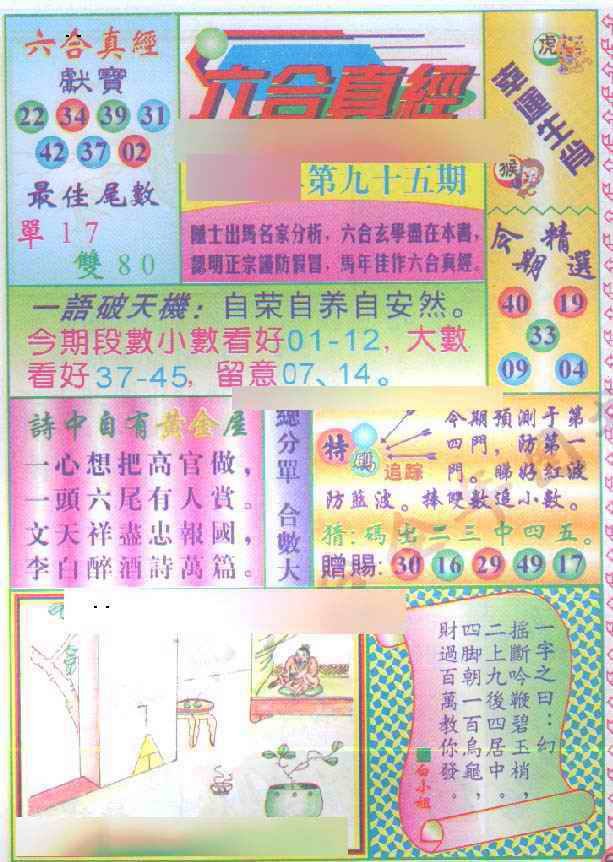 六合真經
獻寶
22 34 39 31
42 37 02
最佳尾數
單17
雙80
六合真經
第九十五期
隱士出馬名家分析，六合玄學盡在本書，
認明正宗謹防假冒，馬年佳作六合真經。
虎
猴
今期精選
40 19
33
09 04
一語破天機：自荣自养自安然。
今期段數小數看好01-12，大數
看好37-45，留意07、14。
詩中自有黃金屋
一心想把高官做，
一頭六尾有人賞。
文天祥盡忠報國，
李白醉酒詩萬篇。
總分單 合數大
特碼
追踪
今期預測于第
四門，防第一
門。睇好紅波
防藍波。捧雙數追小數。
猜：碼出二三中四五。
贈賜：30 16 29 49 17
一字之曰：幻
搖斷吟鞭碧玉梢，
二上九後四居中。
四脚朝一百烏龜，
財過百萬教你發。
白小姐